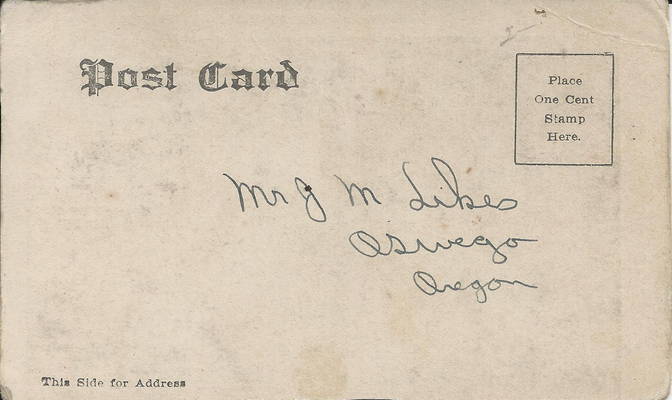 Post Card
Place
One Cent
Stamp
Here.
Mr J M Likes
Oswego
Oregon
This Side for Address